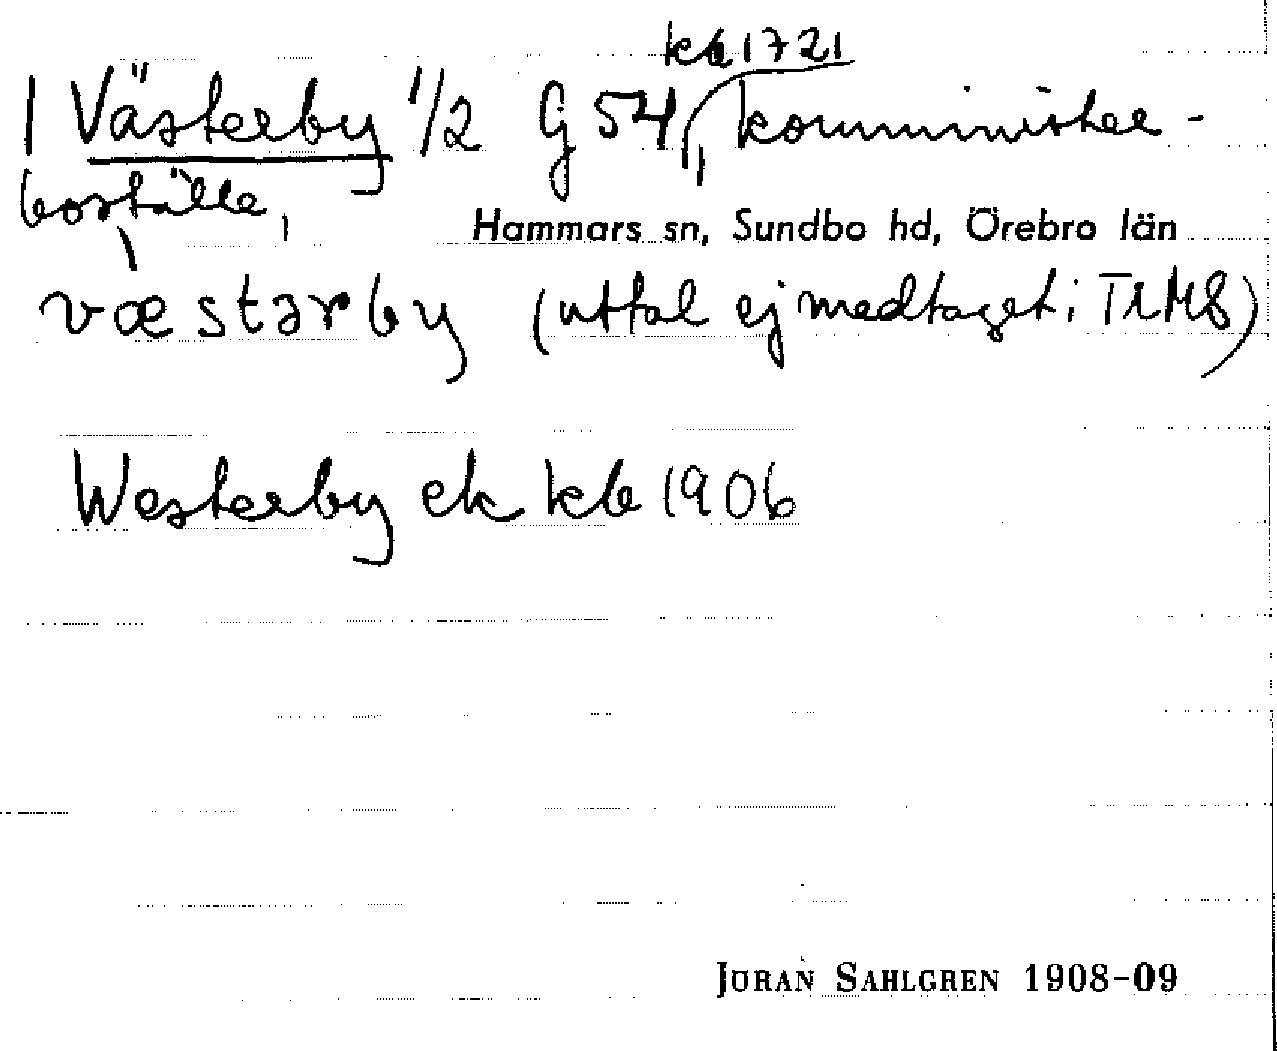 kb 1721
1 Västerby 1/2 G 54, komminister-
boställe,
Hammars sn, Sundbo hd, Örebro län
væstərby (uttal ej medtaget i TRMS)
Westerby ek kb 1906
JÖRAN SAHLGREN 1908-09